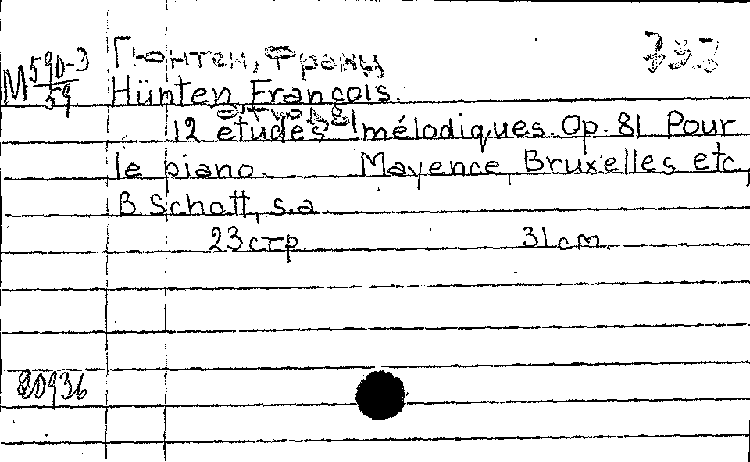 Гюнтен, Франц
M 590-3/59
Hünten François.
Этюды
12 études mélodiques. Op. 81 Pour
le piano. Mayence, Bruxelles etc,
B. Schott, s.a.
23 стр 31 cm.
20936